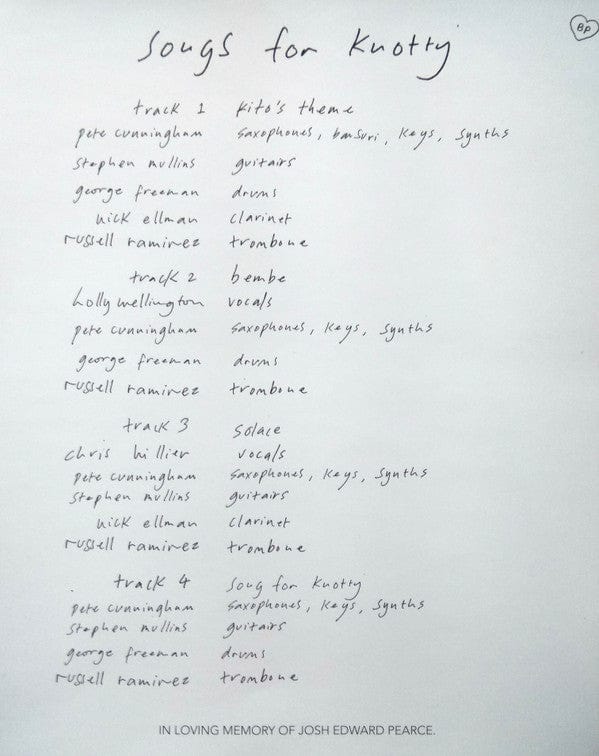 BP
songs for knotty
track 1 kito's theme
pete cunningham saxophones, bansuri, keys, synths
stephen mullins guitars
george freeman drums
nick ellman clarinet
russell ramirez trombone
track 2 bembe
holly wellington vocals
pete cunningham saxophones, keys, synths
george freeman drums
russell ramirez trombone
track 3 solace
chris hillier vocals
pete cunningham saxophones, keys, synths
stephen mullins guitars
nick ellman clarinet
russell ramirez trombone
track 4 song for knotty
pete cunningham saxophones, keys, synths
stephen mullins guitars
george freeman drums
russell ramirez trombone
IN LOVING MEMORY OF JOSH EDWARD PEARCE.